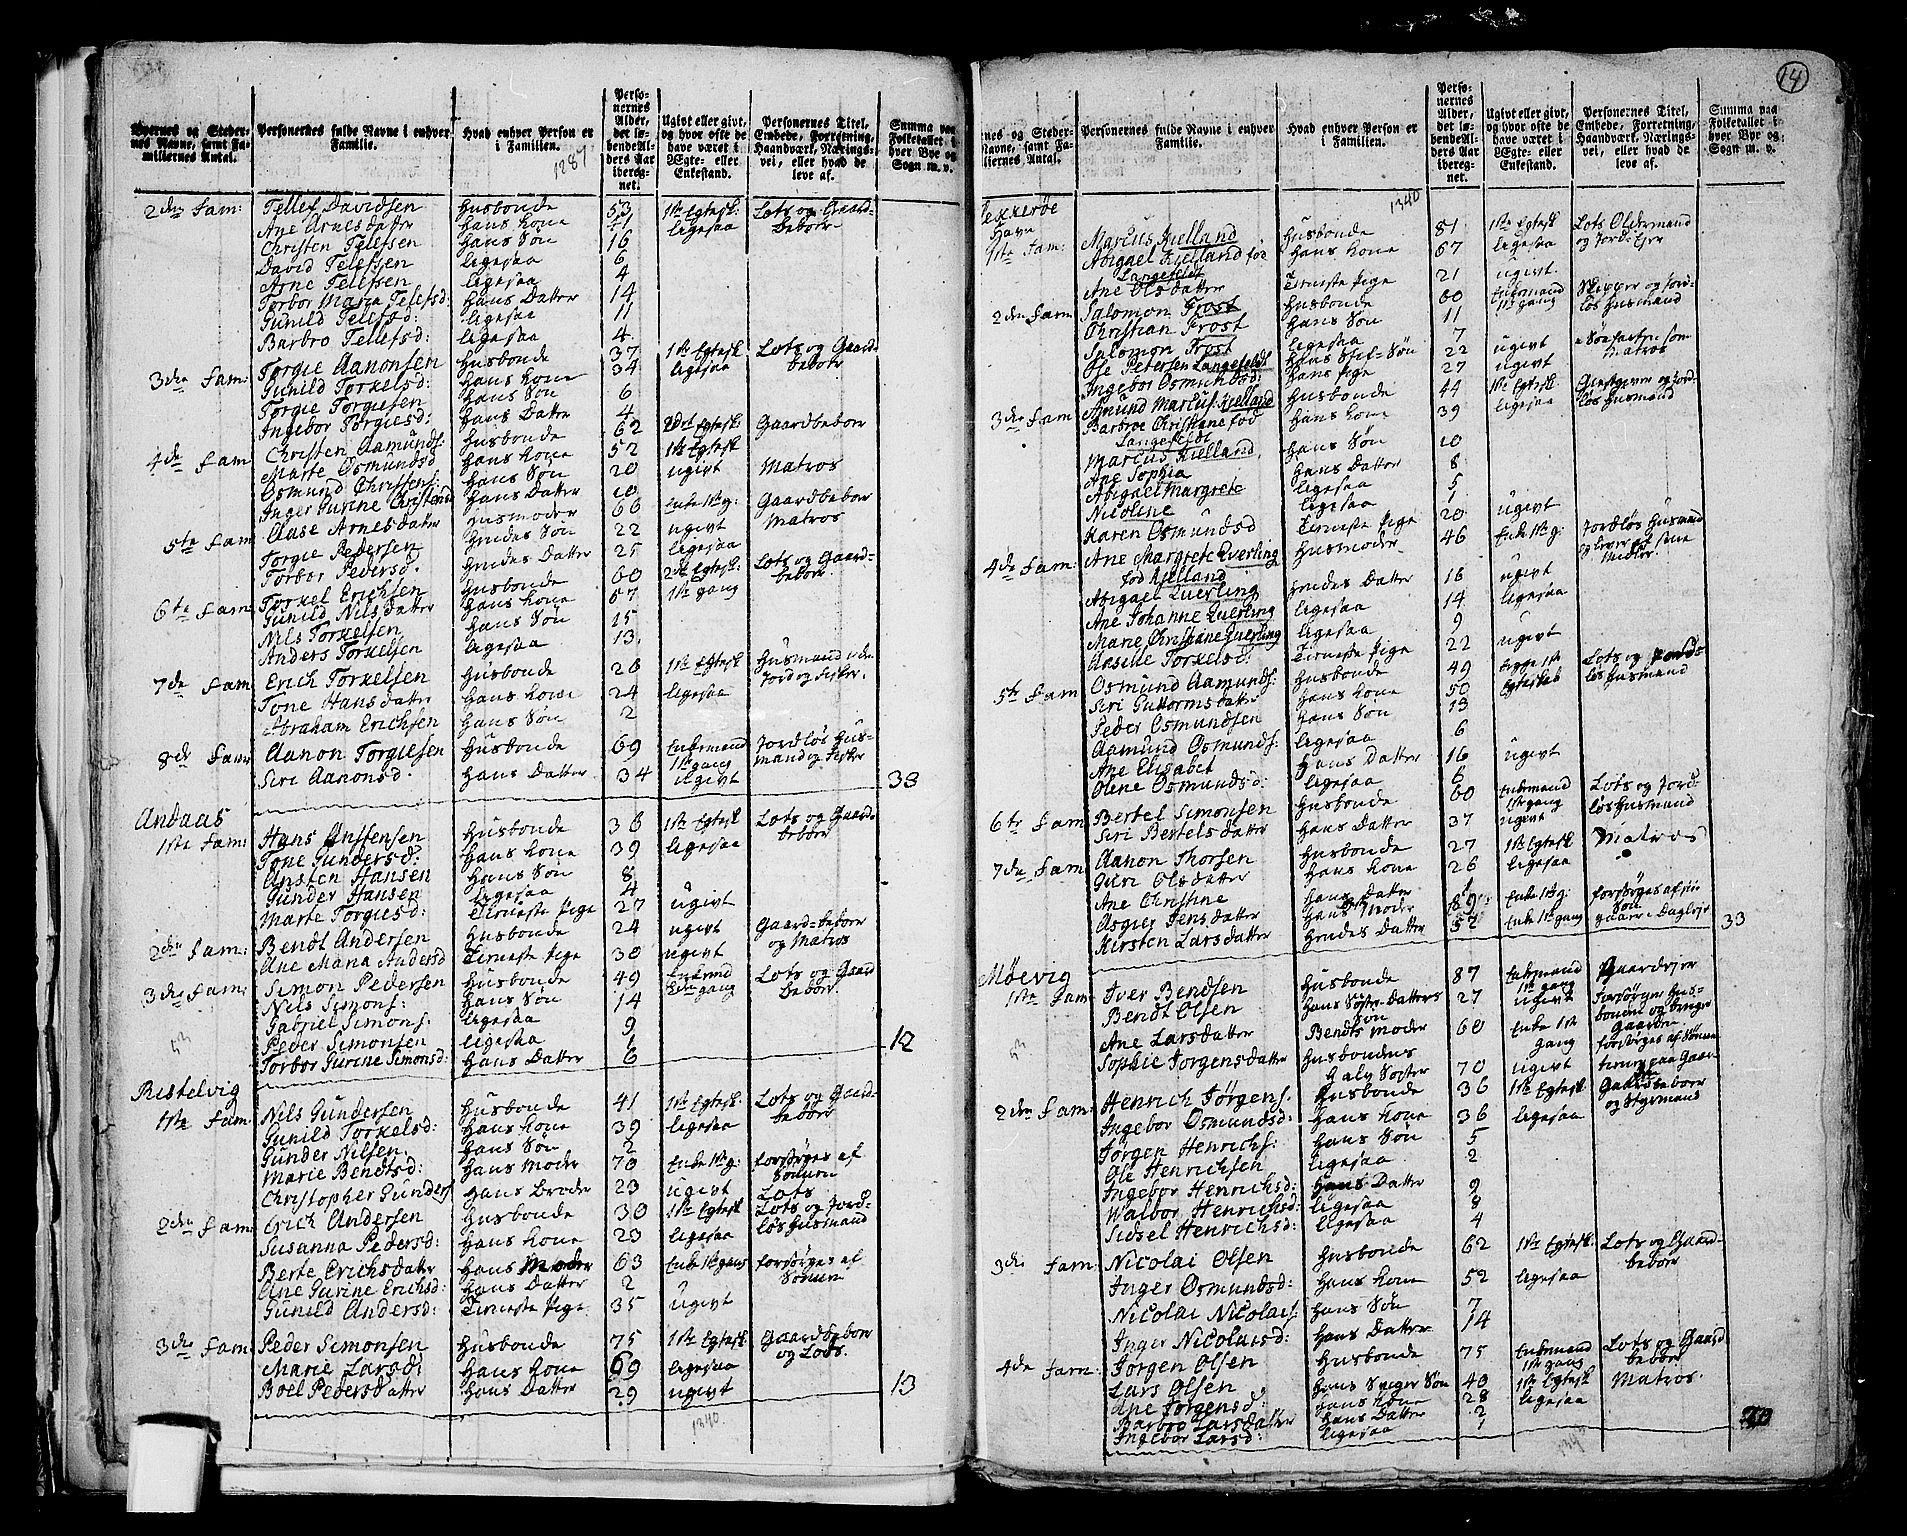 Byernes og Steder-
nes Navne, samt Fa-
miliernes Antal.
Personernes fulde Navne i enhver
Familie.
Hvad enhver Person er
i Familien.
1287
Perso-
nernes
Alder,
det lø-
bende Al-
ders Aar
ibereg-
net.
Ugivt eller givt,
og hvor ofte de
have været i
Ægte- eller
Enkestand.
Personernes Titel,
Embede, Forretning,
Haandværk, Nærings-
vei, eller hvad de
leve af.
Summa paa
Folketallet i
hver Bye og
Sogn m. v.
2den Fam: Tellef Davidsen Husbonde 53 1ste Egtesk: Lots og Gaard-
Ane Arnesdatter Hans Kone 41 ligesaa beboer
Christen Telefsen Hans Søn 16
David Telefsen ligesaa 6
Arne Telefsen ligesaa 4
Torbor Maria Telefsd: Hans Datter 14
Gunild Telefsd: ligesaa 11
Barbro Tellefsd: ligesaa 4
3die Fam: Torgie Aanonsen Husbonde 37 1ste Egtesk Lots og Gaard-
Gunild Torkelsd: Hans Kone 34 ligesaa beboer
Torgie Torgiesen Hans Søn 6
Ingebor Torgiesd: Hans Datter 4
4de Fam Christen Aamunds: Husbonde 62 2det Egtesk: Gaardbeboer
Marte Osmundsd Hans Kone 52 1ste Egtesk
Osmund Christens: Hans Søn 20 ugivt Matros
Inger Gurine Christensd Hans Datter 10
5te Fam Aase Arnesdatter Husmoder 66 Enke 1ste g: Gaardbeboer
Torgie Pedersen Hendes Søn 22 ugivt Matros
Torbor Pedersd. Hendes Datter 25 ligesaa
6te Fam Torkel Erichsen Husbonde 60 2det Egtesk: Lots og Gaard-
Gunild Nilsdatter Hans Kone 57 1ste gang beboer
Nils Torkelsen Hans Søn 15
Anders Torkelsen ligesaa 13
7de Fam Erich Torkelsen Husbonde 26 1ste Egtesk Husmand uden
Tone Hansdatter Hans Kone 24 ligesaa Jord og Fisker
Abraham Erichsen Hans Søn 2
8de Fam Aanon Torgiesen Husbonde 69 Enkemand Jordløs Hus-
1ste gang mand og Fisker
Siri Aanonsd. Hans Datter 34 ugivt 38
Andaas
1ste Fam: Hans Anstensen Husbonde 36 1ste Egtesk Lots og Gaard-
Tone Gundersd: Hans Kone 39 ligesaa beboer
Ansten Hansen Hans Søn 8
Gunder Hansen ligesaa 4
Marte Torgiesd: Tieneste Pige 27 ugivt
2den Fam: Bendt Andersen Husbonde 24 ugivt Gaard-beboer
Ane Maria Andersd Tieneste Pige 30 ugivt og Matros
3die Fam: Simon Pedersen Husbonde 49 Enkemd Lots og Gaard
Nils Simons: Hans Søn 14 2den gang beboer
Gabriel Simons: ligesaa 9
Peder Simonsen ligesaa 1
53
Torbor Gurine Simonsd: Hans Datter 6 12
Ristelvig
1ste Fam Nils Gundersen Husbonde 41 1ste Egtesk. Lots og Gaard-
Gunild Torkelsd: Hans Kone 39 ligesaa beboer
Gunder Nilsen Hans Søn 2
Marie Bendtsd: Hans Moder 70 Enke 1ste g: forsørges af
Sønnen
Christopher Gunders Hans Broder 23 ugivt Lots
2den Fam Erich Andersen Husbonde 30 1ste Egtesk Lots og Jord-
Susanna Pedersd: Hans Kone 23 ligesaa løs Husmand
Berte Erichsdatter Hans Moder 63 Enke 1ste gang forsørges af
Ane Gurine Erichsd: Hans Datter 2 Sønnen
Gunild Andersd: Tieneste Pige 35 ugivt
3die Fam Peder Simonsen Husbonde 75 1ste Egtesk Gaardbeboer
Marie Larsd: Hans Kone 69 ligesaa og Lots
Boel Pedersdatter Hans Datter 29 ugivt 13
1340
14
nes og Steder-
Navne, samt Fa-
iliernes Antal.
Personernes fulde Navne i enhver
Familie.
Hvad enhver Person er
i Familien.
1340
Perso-
nernes
Alder,
det lø-
bende Al-
ders Aar
ibereg-
net.
Ugivt eller givt,
og hvor ofte de
have været i
Ægte- eller
Enkestand.
Personernes Titel,
Embede, Forretning,
Haandværk, Nærings-
vei, eller hvad de
leve af.
Summa paa
Folketallet i
hver Bye og
Sogn m. v.
Flekkerøe
Havn
1ste Fam: Marcus Kielland Husbonde 81 1ste Egtesk Lots Oldermand
Abigael Kielland fød Hans Kone 67 ligesaa og Jords Ejer
Langefeldt
Ane Olsdatter Tieneste Pige 21 ugivt
2den Fam Salomon Frost Husbonde 60 Enkemand Skipper og Jord-
Christian Frost Hans Søn 11 1ste gang løs Husmand
Salomon Frost ligesaa 7
Ole Petersen Langefeldt Hans Stif-Søn 22 ugivt Søefarten som
Ingebor Osmundsd: Hans Pige 27 ugivt Matros
3die Fam Amund Marcus: Kielland Husbonde 44 1ste Egtesk. Giestgiver og Jord-
Barbroe Christiane fød Hans Kone 39 ligesaa løs Husmand
Langefeldt
Marcus Kielland Hans Søn 10
Ane Sophia Hans Datter 8
Abigael Margrete ligesaa 5
Nicoline ligesaa 1
Karen Osmundsd Tieneste Pige 20 ugivt
4de Fam: Ane Margrete Qverling Husmoder 46 Enke 1ste g. Jordløs Husmand
fød Kielland og lever af sine
Midler
Abigael Qverling Hendes Datter 16 ugivt
Ane Johanne Qverling ligesaa 14 ligesaa
Marie Christiane Qverling ligesaa 9
Aaselle Torkelsd: Tieneste Pige 22 ugivt
5te Fam Osmund Aamunds: Husbonde 49 begge 1ste Lots og Jord-
Siri Guttormsdatter Hans Kone 50 Egteskab løs Husmand
Peder Osmundsen Hans Søn 13
Aamund Osmunds: ligesaa 6
Ane Elisabet Hans Datter 16 ugivt
Olene Osmundsd: ligesaa 6
6te Fam Bertel Simonsen Husbonde 60 Enkemand Lots og Jord-
1ste gang løs Husmand
Siri Bertelsdatter Hans Datter 37 ugivt
7de Fam Aanon Thorsen Husbonde 27 1ste Egtesk Matros
Guri Olsdatter Hans Kone 26 ligesaa
Ane Christine Hans Datter 1
Asgier Jensdatter Hans Moder 89 Enke 1ste g: forsørges af sin
Søn
Kirsten Larsdatter Hendes Datter 52 Enke 1ste gang 33
Møevig
1ste Fam Iver Bendsen Husbonde 87 Enkemand Gaardejer
1ste gang
Bendt Olsen Hans Søster-Datters 27 ugivt Forsørger Hus-
Søn bonden og bruger
Gaarden
Ane Larsdatter Bendts Moder 60 Enke 1ste forsørges af Sønnen
gang
53
Sophie Jorgensdatter Husbondens 70 ugivt
Halv Søster
2den Fam: Henrich Jørgens. Husbonde 36 1ste Egtesk Gaardbeboer
Ingebor Osmundsd: Hans Kone 36 ligesaa og Styrmand
Jörgen Henrichs: Hans Søn 5
Ole Henrichsen ligesaa 2
Ingebor Henrichsd: Hans Datter 9
Walbor Henrichsd: ligesaa 8
Sidsel Henrichsd: ligesaa 4
3die Fam: Nicolai Olsen Husbonde 62 1ste Egtesk. Lots og Gaard-
Inger Osmundsd: Hans Kone 52 ligesaa beboer
Nicolai Nicolais: Hans Søn 7
Inger Nicolaisd: Hans Datter 14
4de Fam: Jorgen Olsen Husbonde 75 Enkemand Lots og Gaard
1ste gang beboer
Lars Olsen Hans Sviger Søn 40 1ste Egtesk Matros.
Ane Jorgensd: Hans Kone 28 ligesaa
Barbro Larsdatter Hans Datter 2
Ingebor Larsd: ligesaa 1 20